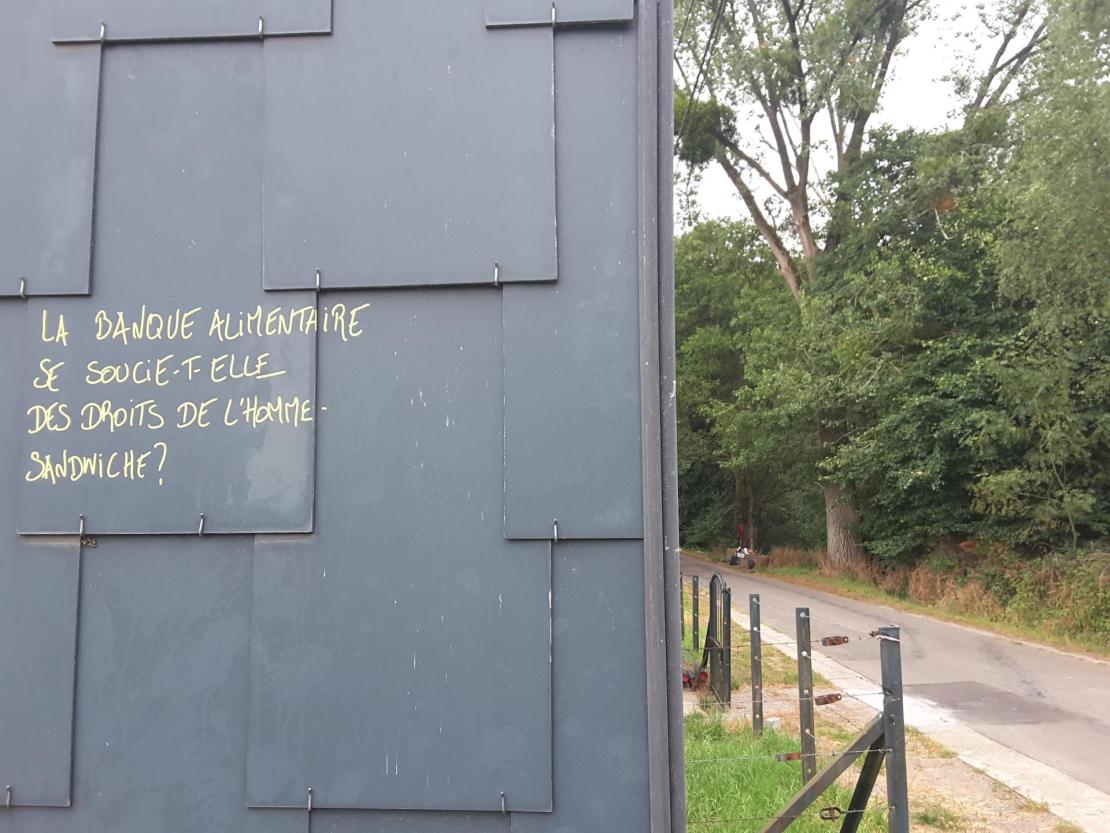 LA BANQUE ALIMENTAIRE
SE SOUCIE-T-ELLE
DES DROITS DE L'HOMME-
SANDWICHE?